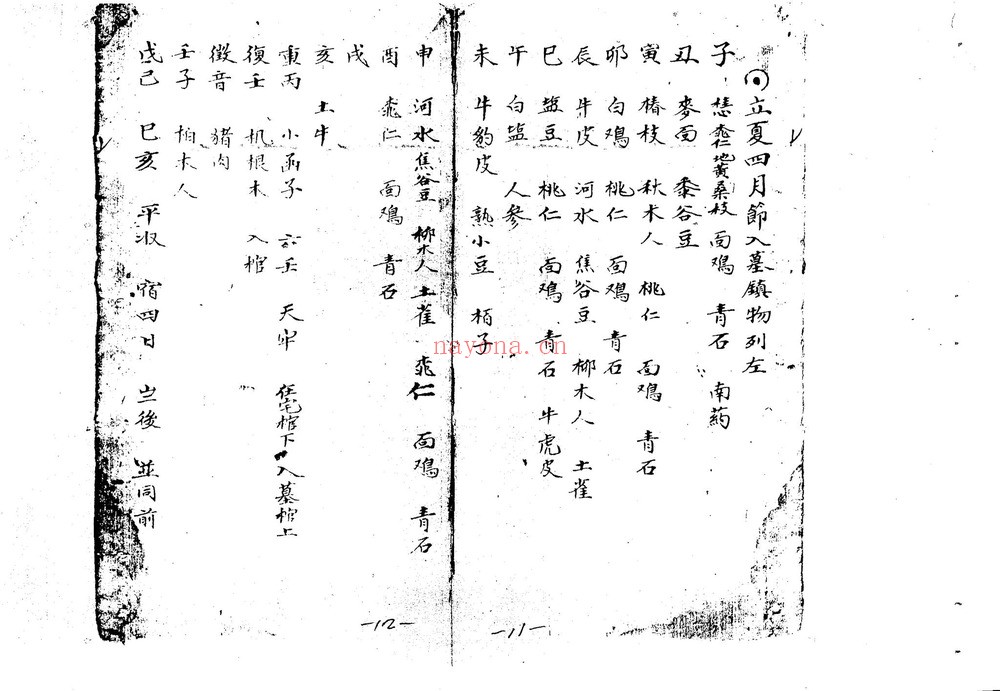 立夏四月節入墓鎮物列左
子 桃仁地黄桑枝 面鳮 青石 南葯
丑 麥面 黍谷豆
寅 椿枝 秋木人 桃仁 面鳮 青石
卯 白鳮 桃仁 面鳮 青石
辰 牛皮 河水 焦谷豆 柳木人 土雀
巳 盐豆 桃仁 面鳮 青石 牛虎皮
午 白盐 人參
未 牛豹皮 熟小豆 栢子
-11-
申 河水 焦谷豆 柳木人 土雀 桃仁 面鳮 青石
酉 桃仁 面鳮 青石
戌
亥 土牛
重丙 小函子 六壬 天牢 在宅棺下 入墓棺上
復壬 根木 入棺
徵音 猪肉
壬子 柏木人
戊己 巳亥 平収 宿四日 岦後 並同前
-12-
nayona.cn